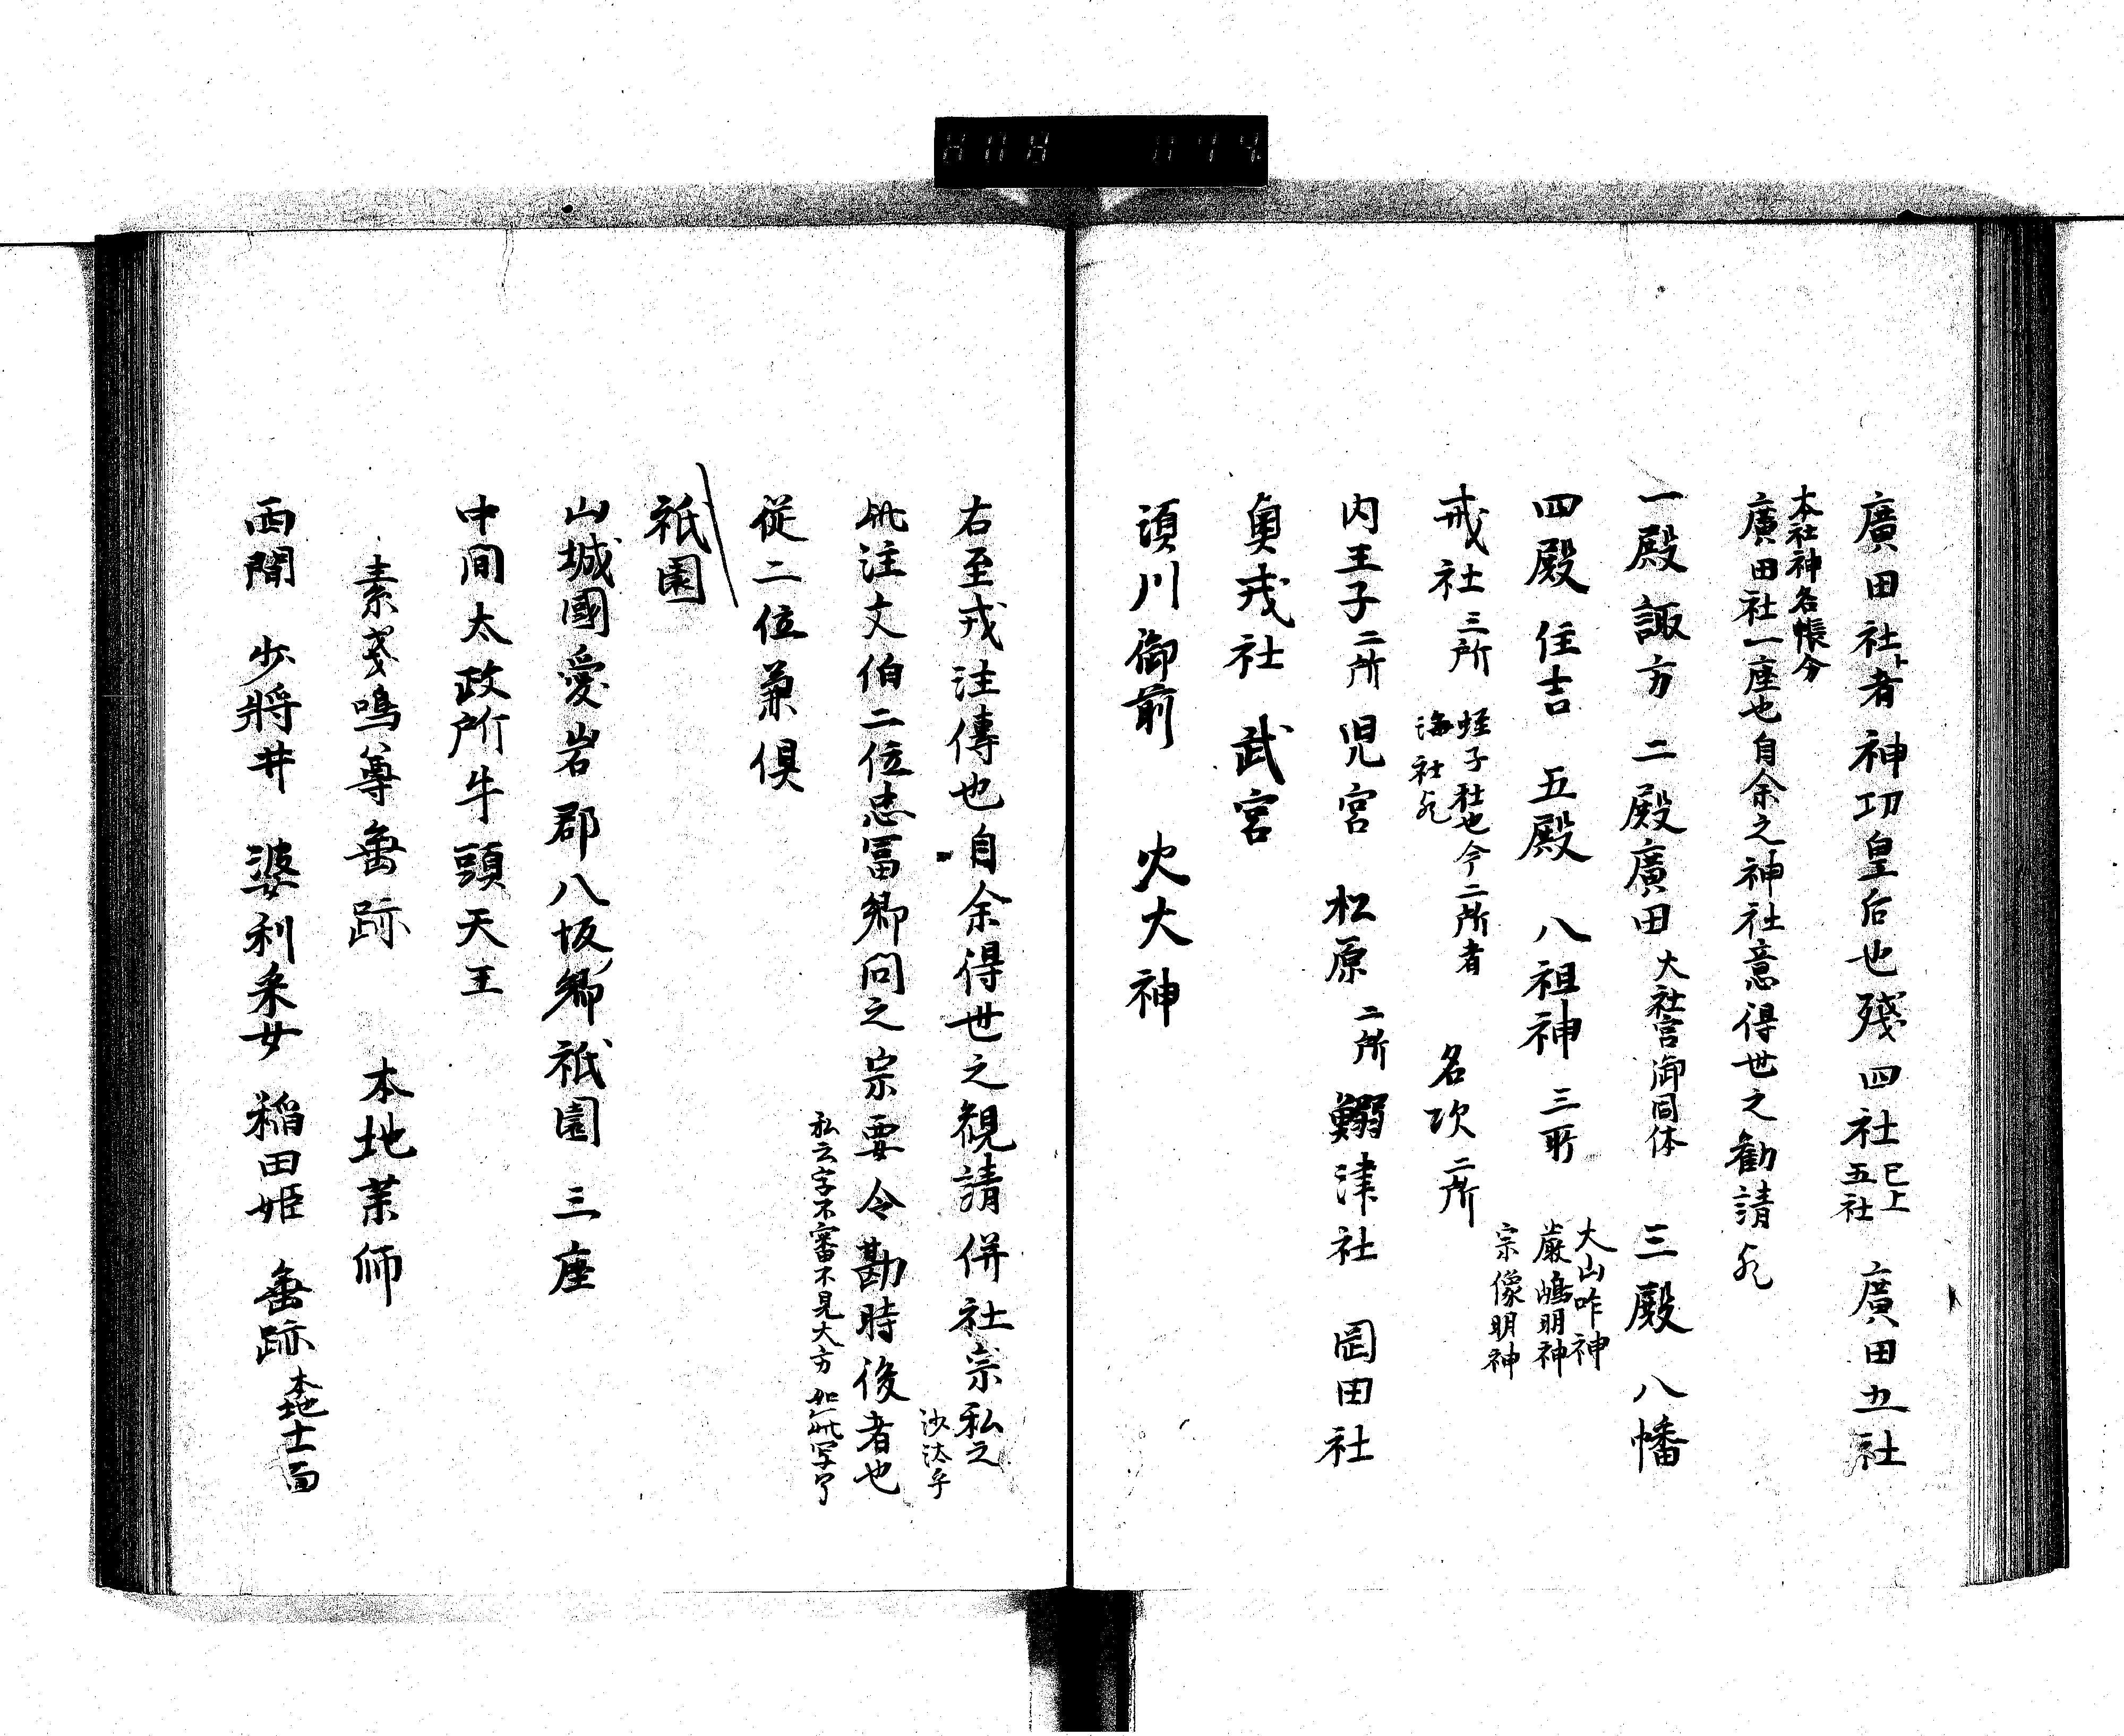 廣田社者神功皇后也殘四社已上五社 廣田五社
本社神名帳今
廣田社一座也自余之神社意得世之勧請
一殿諏方 二殿廣田大社宮御同体 三殿八幡
四殿住吉 五殿 八祖神三所
大山咋神
厳嶋明神
宗像明神
戎社三所 蛭子社也今二所者
海社
名次二所
内王子二所 児宮 松原二所 鰯津社 岡田社
奥戎社 武宮
須川御前 火大神
右至戎注傳也自余得世之観請併社宗私之
沙汰乎
此注文伯二位忠冨卿問之宗要令勘時後者也
私云字不審不見大方如此写了
従二位兼倶
祇園
山城國愛岩郡八坂郷祇園三座
中間太政所牛頭天王
素戔嗚尊垂跡 本地薬師
西間 少將井 婆利采女 稲田姫 垂跡本地十一面